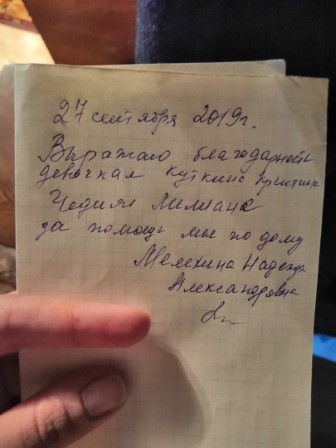 27 сентября 2019г.
Выражаю благодарность
девочкам Куткина Кристина
Чедия Лилиана
за помощь мне по дому
Мелехина Надежда
Александровна